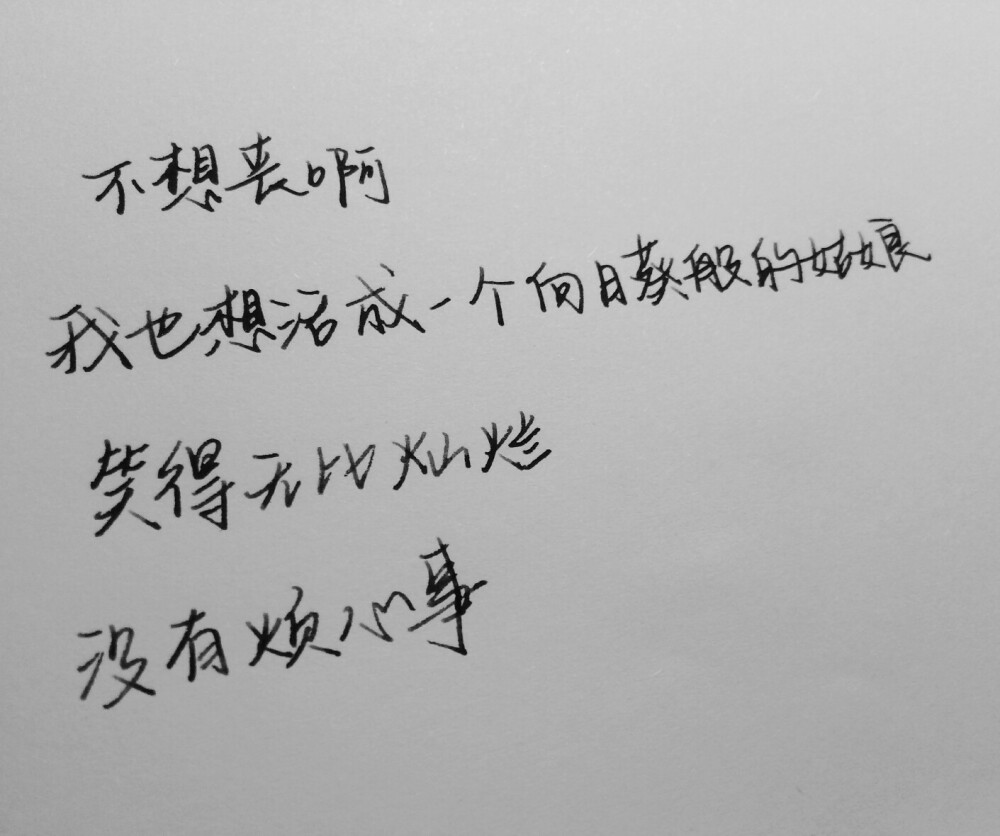 不想丧啊
我也想活成一个向日葵般的姑娘
笑得无比灿烂
没有烦心事